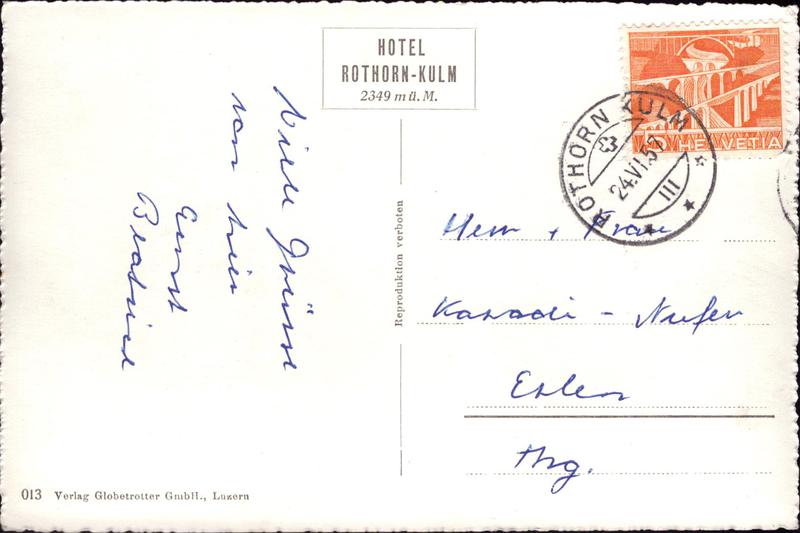 HOTEL
ROTHORN-KULM
2349 m ü. M.
5 HELVETIA
ROTHORN KULM
24.VI.57
III
Viele Grüsse
von hier
Ernst
Reproduktion verboten
Herr + Frau
Nufer
Thrg.
013 Verlag Globetrotter GmbH., Luzern